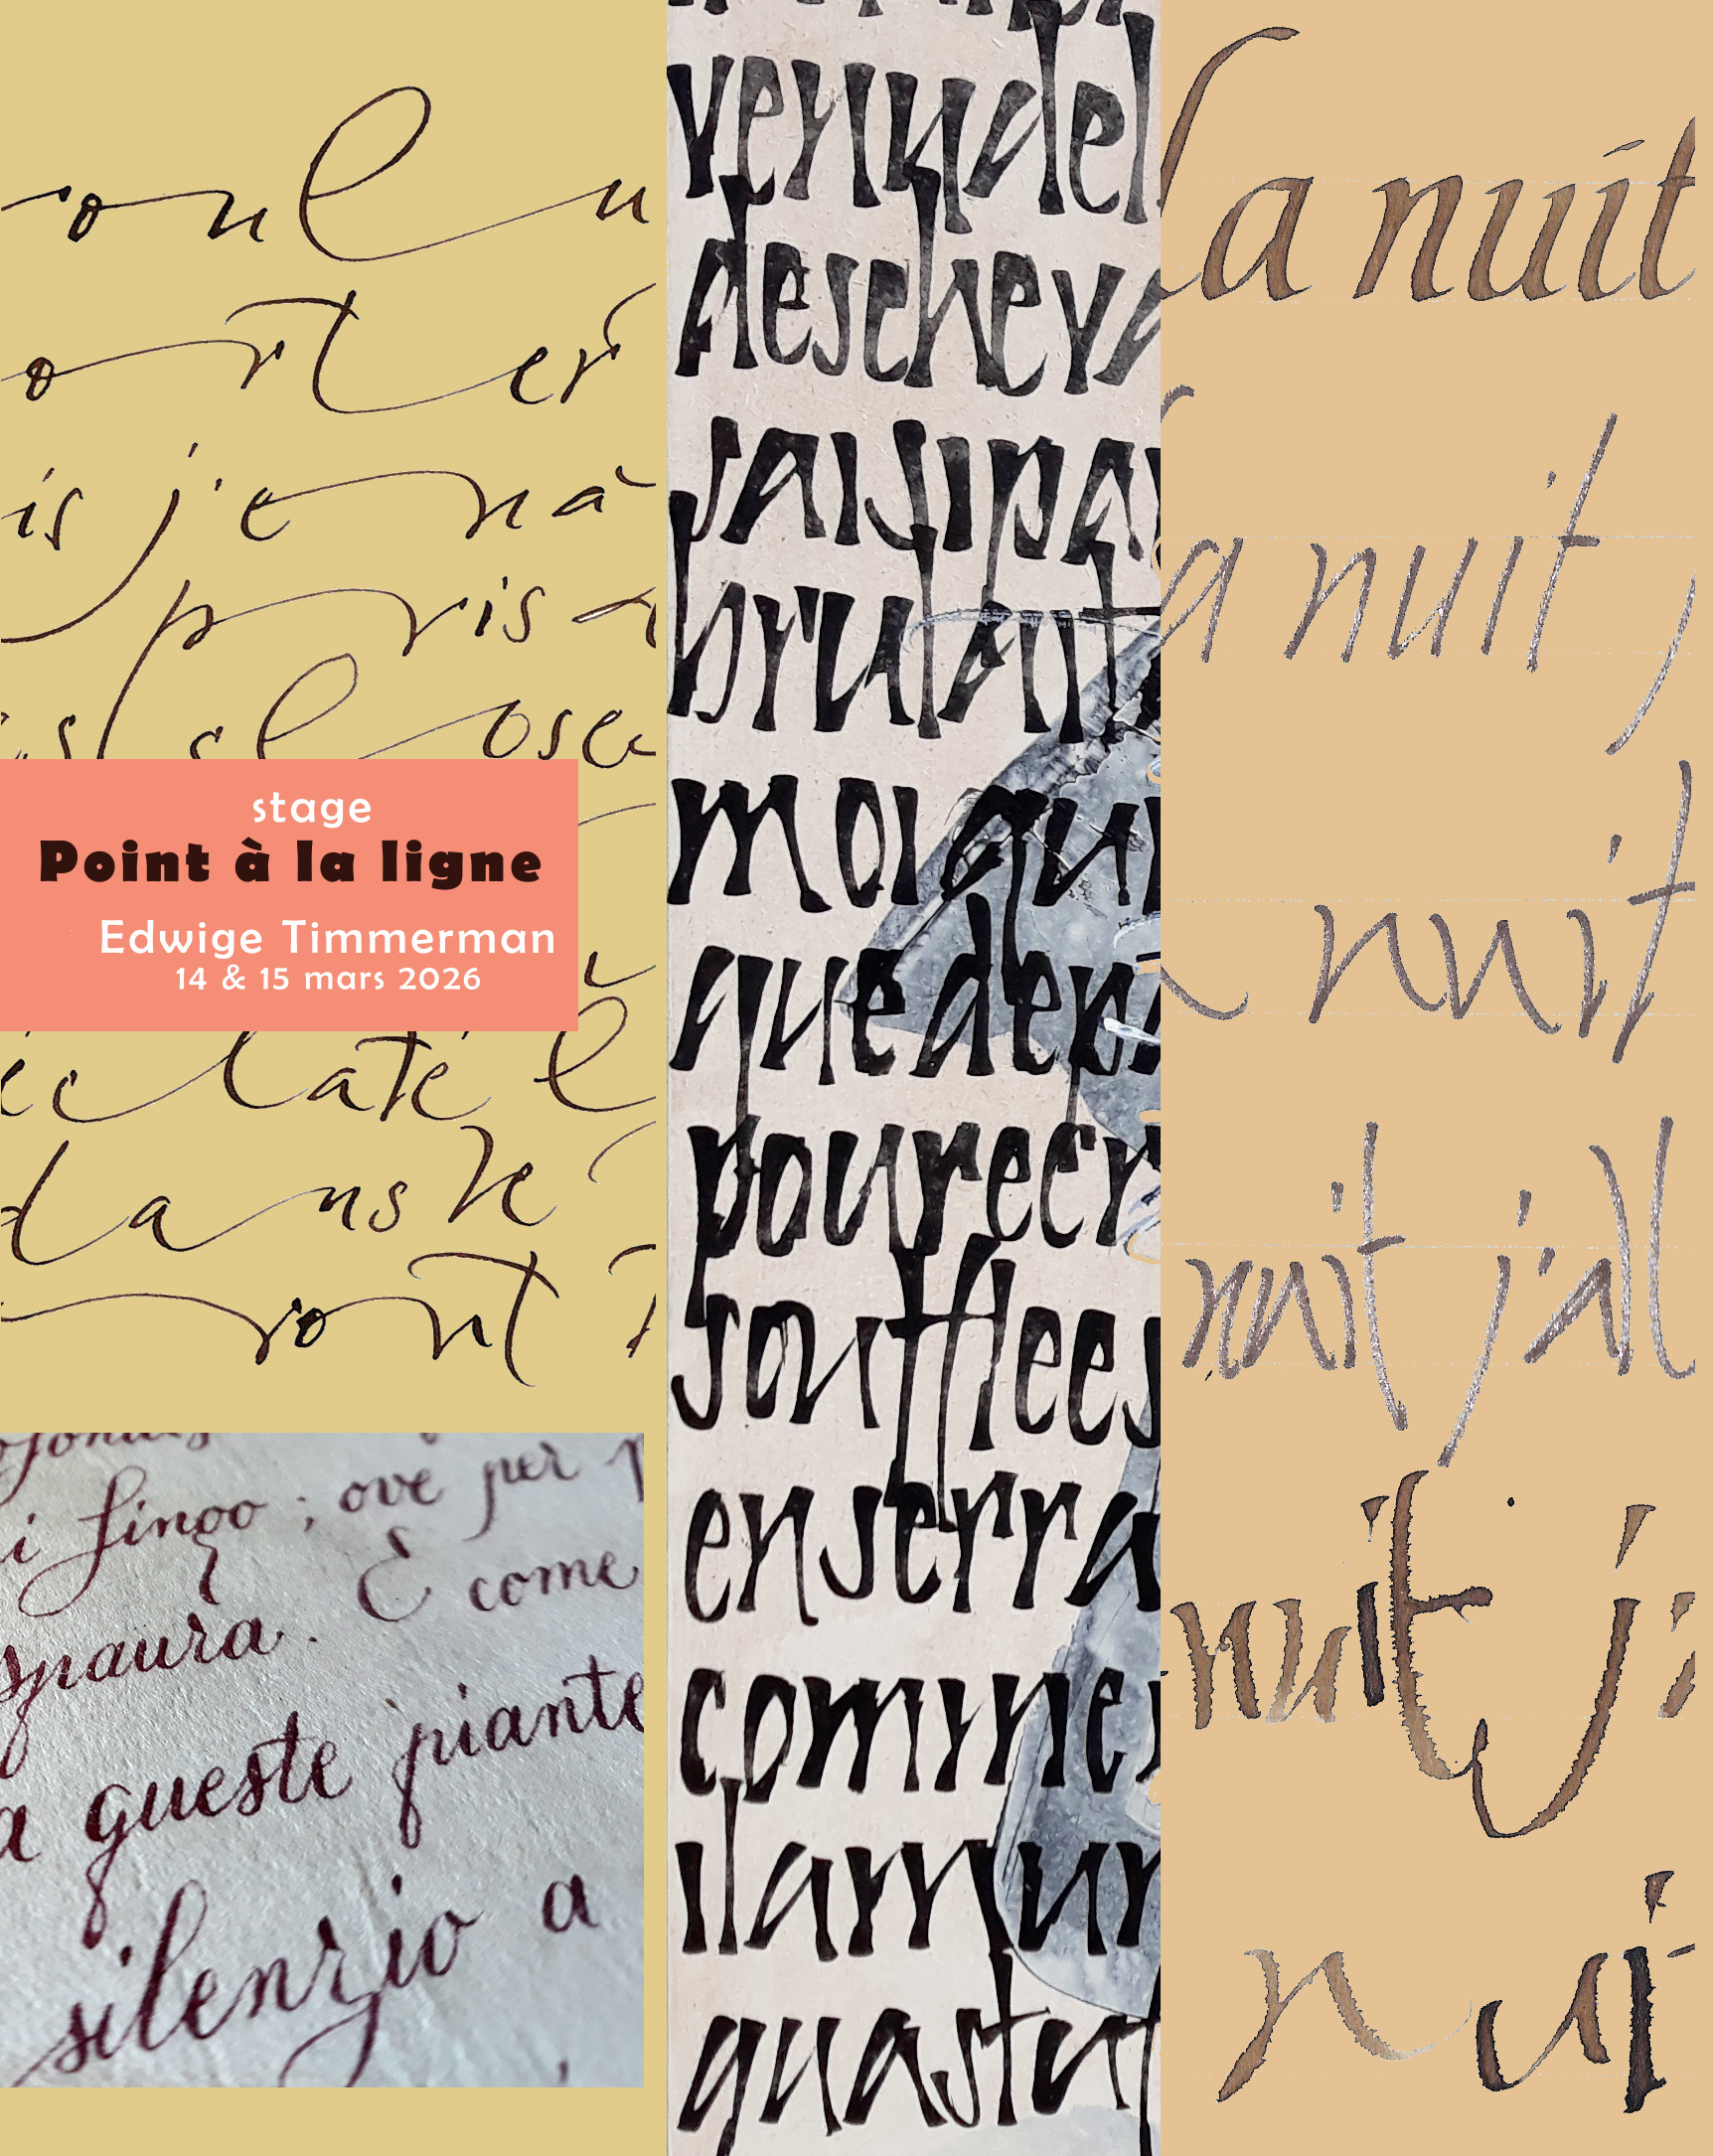 oul u
o rt er
is j'e n a
pris a
es el ose
stage
Point à la ligne
Edwige Timmerman
14 & 15 mars 2026
éclaté l
dans le
ront
i fingo ; ove per p
spaura. E come
a queste piante
silenzio a
venudel
descheva
saisipar
brulait
moiqui
quedep
pourecr
soufflees
enserra
comme
ilamur
quastu
la nuit
a nuit j
nuit
nuit j'all
nuit j'
nui